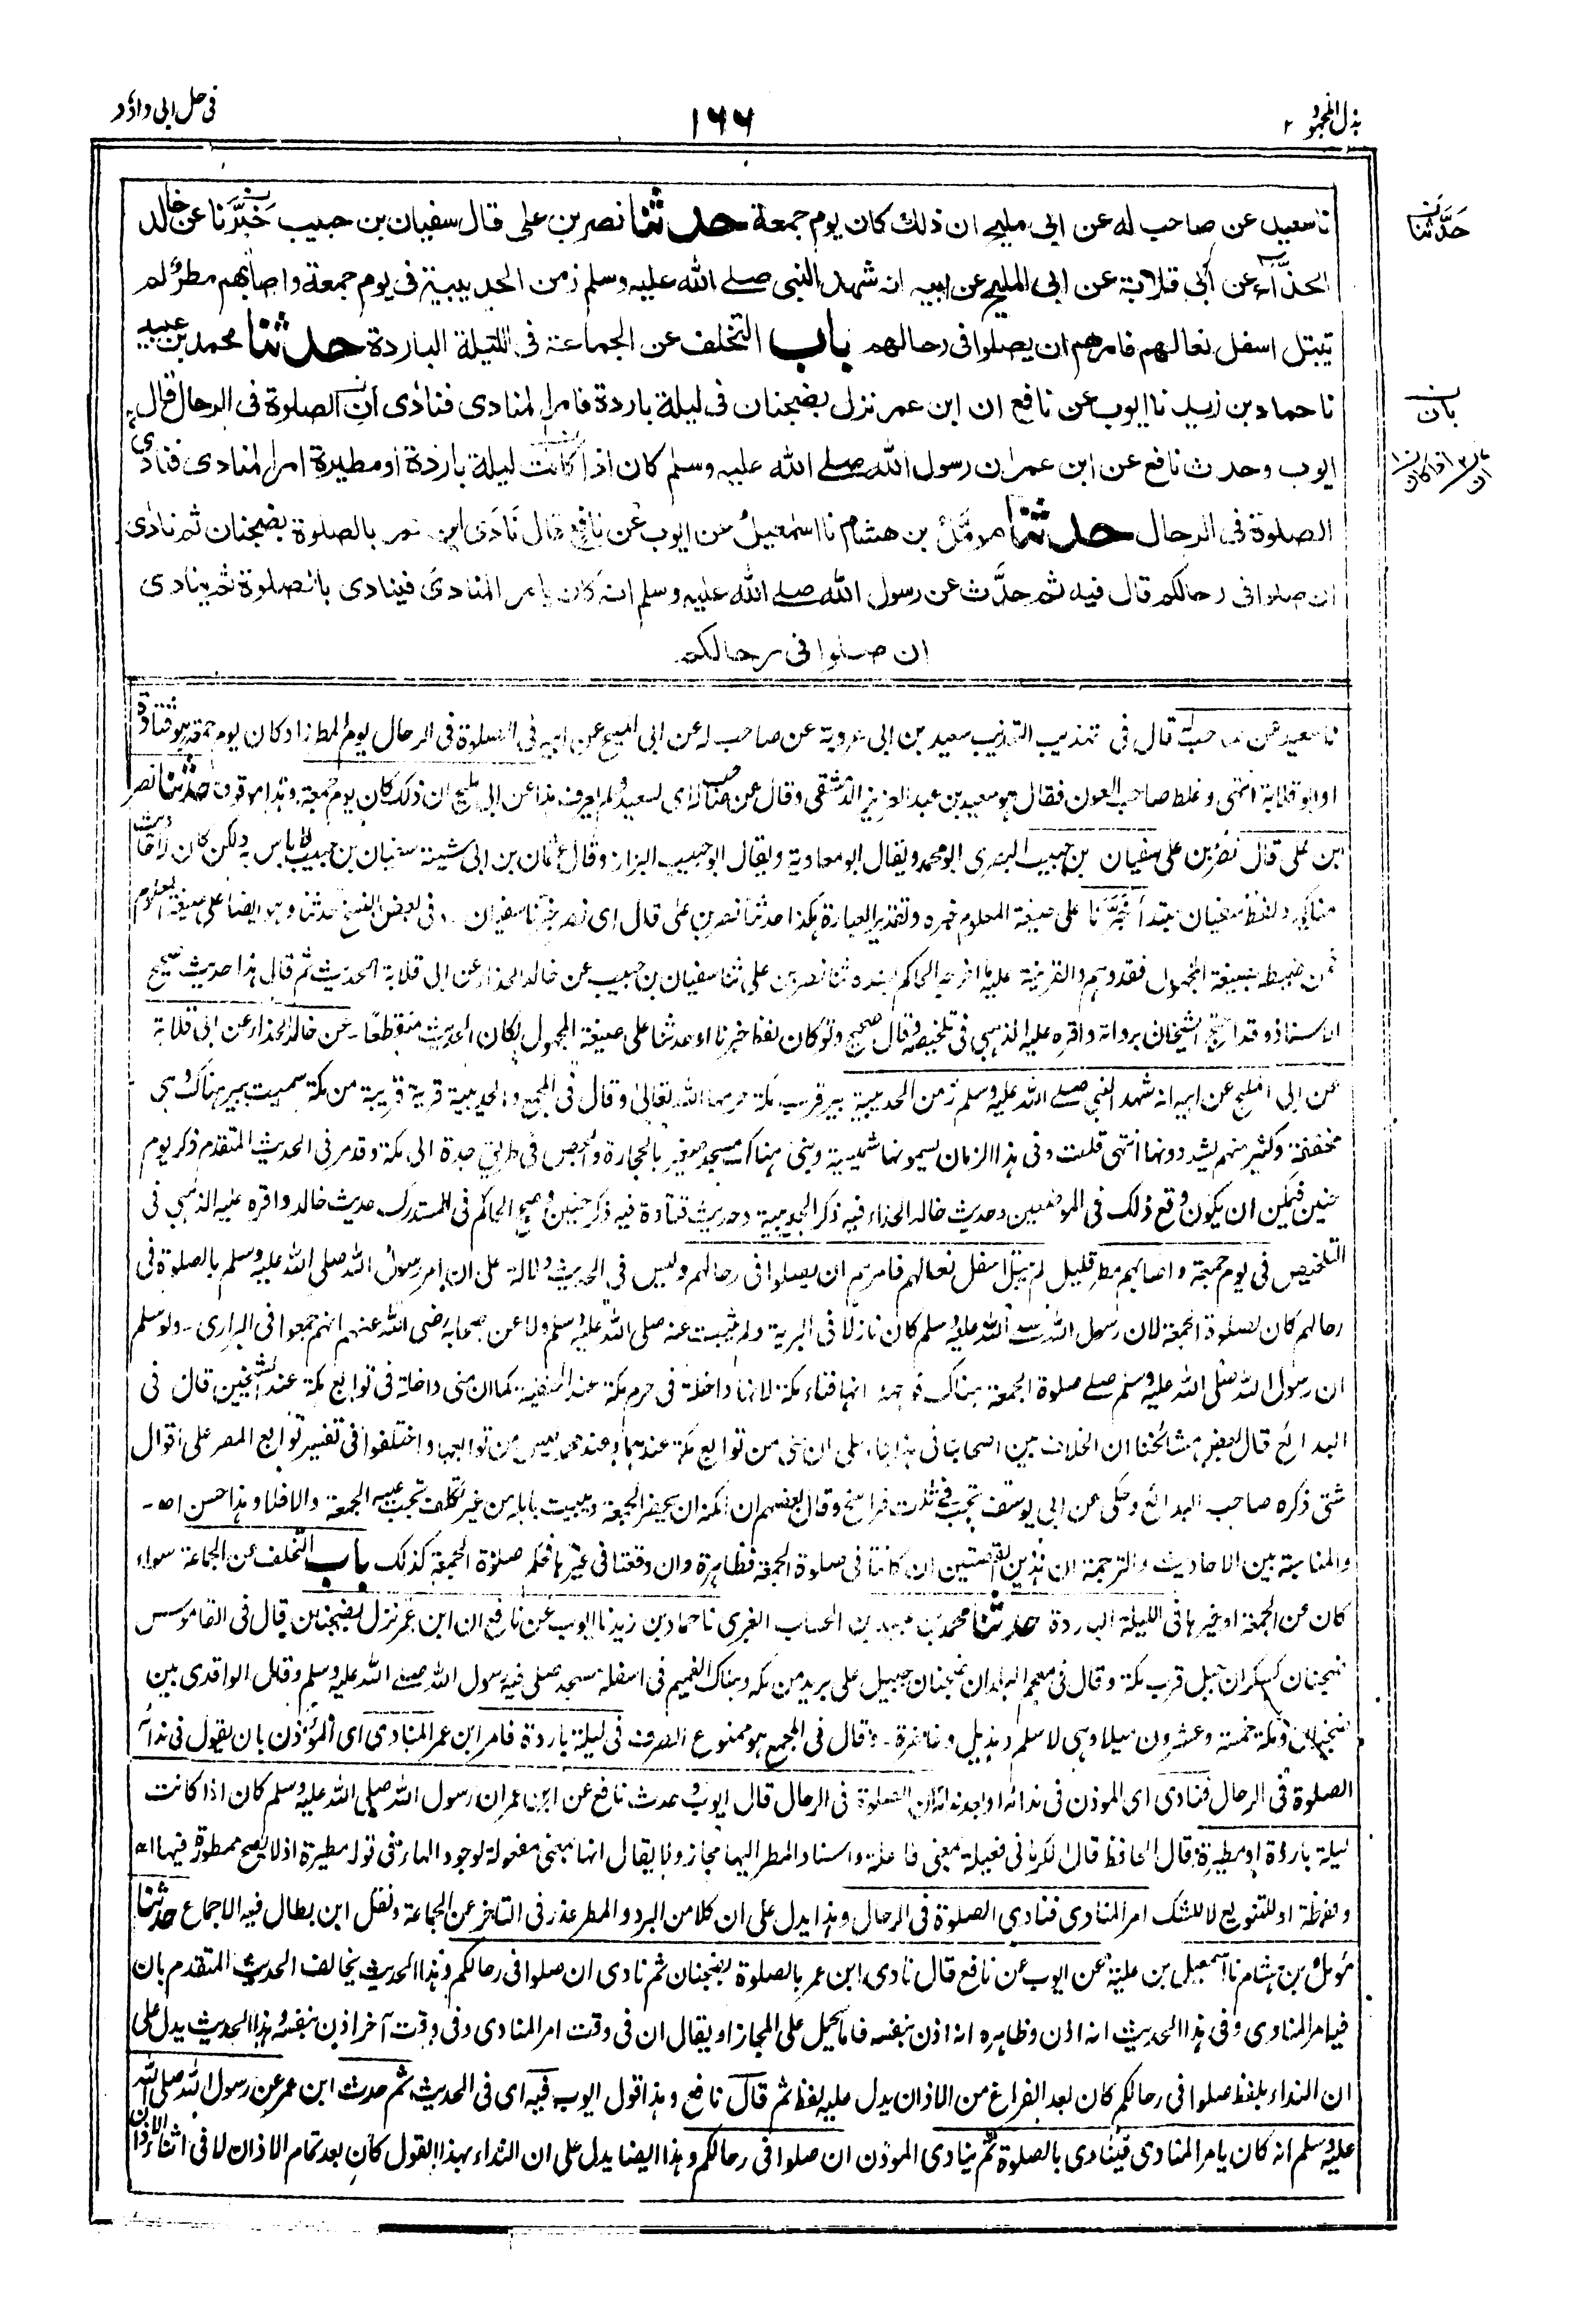 بذل المجهود ٢
١٦٦
فی حل ابی داؤد
نا سعيد عن صاحب له عن ابی مليح ان ذلك كان يوم جمعة حدثنا نصر بن علی قال سفيان بن حبيب خبرنا عن خالد
الحذاء عن ابی قلابة عن ابی المليح عن ابيه انه شهد النبی صلے الله عليه وسلم زمن الحديبية فی يوم جمعة واصابهم مطر لم
يبتل اسفل نعالهم فامرهم ان يصلوا فی رحالهم باب التخلف عن الجماعة فی الليلة الباردة حدثنا محمد بن عبيد
نا حماد بن زيد نا ايوب عن نافع ان ابن عمر نزل بضجنان فی ليلة باردة فامر المنادی فنادی ان الصلوة فی الرحال قال
ايوب وحدث نافع عن ابن عمر ان رسول الله صلے الله عليه وسلم كان اذا كانت ليلة باردة او مطيرة امر المنادی فنادی
الصلوة فی الرحال حدثنا مومّل بن هشام نا اسمعيل عن ايوب عن نافع قال نادی ابن عمر بالصلوة بضجنان ثم نادی
ان صلوا فی رحالكم قال فيه ثم حدّث عن رسول الله صلے الله عليه وسلم انه كان يامر المنادی فينادی بالصلوة ثم ينادی
ان صلوا فی رحالكم
حدّثنا
بان
اذا كان
نا سعيد عن صاحب له قال فی تهذيب التهذيب سعيد بن ابی عروبة عن صاحب له عن ابی المليح عن ابيه فی الصلوة فی الرحال يوم المطر زاد كان يوم جمعة هو قتادة
او ابو قلابة انتهى وغلط صاحب العون فقال هو سعيد بن عبد العزيز الدمشقی وقال عن صاحب له ای لسعيد ولم يعرف هذا عن ابی مليح ان ذلك كان يوم جمعة وهذا موقوف حدثنا نصر
ابن علی قال نصر بن علی سفيان بن حبيب البصری ابو محمد ويقال ابو معاوية ويقال ابو حبيب البزاز وقال عثمان بن ابی شيبة سفيان بن حبيب لا باس به ولكن كان له احاديث
مناكير ولفظ سفيان مبتدأ خبّرنا علی صيغة المعلوم خبره وتقدير العبارة هكذا حدثنا نصر بن علی قال ای نصر خبرنا سفيان وفی بعض النسخ حدثنا وهو ايضا علی صيغة المعلوم
فمن ضبط بصيغة المجهول فقد وهم والقرينة عليه ما اخرجه الحاكم بسنده ثنا نصر بن علی ثنا سفيان بن حبيب عن خالد الحذاء عن ابی قلابة الحديث ثم قال هذا حديث صحيح
الاسناد وقد احتج الشيخان برواته واقره عليه الذهبی فی تلخيصه وقال صحيح ولو كان لفظ خبرنا او حدثنا علی صيغة المجهول لكان الحديث منقطعا - عن خالد الحذاء عن ابی قلابة
عن ابی المليح عن ابيه انه شهد النبی صلے الله عليه وسلم زمن الحديبية بير قرب مكة حرسها الله تعالیٰ وقال فی المجمع والحديبية قرية قريبة من مكة سميت ببير هناك وهی
مخففة وكثير منهم يشددونها انتهى قلت وفی هذا الزمان يسمونها شميسية وبنی هناك مسجد صغير بالحجارة والجص فی طريق جدة الی مكة وقد مر فی الحديث المتقدم ذكر يوم
حنين فيمكن ان يكون وقع ذلك فی الموضعين وحديث خالد الحذاء فيه ذكر الحديبية وحديث قتادة فيه ذكر حنين وصحح الحاكم فی المستدرك حديث خالد واقره عليه الذهبی فی
التلخيص فی يوم جمعة واصابهم مطر قليل لم يبتل اسفل نعالهم فامرهم ان يصلوا فی رحالهم وليس فی الحديث دلالة علی ان امر رسول الله صلی الله عليه وسلم بالصلوة فی
رحالهم كان لصلوة الجمعة لان رسول الله صلے الله عليه وسلم كان نازلا فی البرية ولم يثبت عنه صلی الله عليه وسلم ولا عن صحابه رضی الله عنهم انهم جمعوا فی البراری - ولو سلم
ان رسول الله صلی الله عليه وسلم صلے صلوة الجمعة هناك فوجهه انها فناء مكة لانها داخلة فی حرم مكة عند الحنفية كما ان منی داخلة فی توابع مكة عند الشيخين قال فی
البدائع قال بعض مشائخنا ان الخلاف بين اصحابنا فی هذا بناء علی ان منی من توابع مكة عندهما وعند محمد ليس من توابعها واختلفوا فی تفسير توابع المصر علی اقوال
شتی ذكره صاحب البدائع وحكی عن ابی يوسف تجب فی ثلث فراسخ وقال بعضهم ان امكنه ان يحضر الجمعة ويبيت باهله من غير تكلف تجب عليه الجمعة والا فلا وهذا حسن اه -
والمناسبة بين الاحاديث والترجمة ان هذين القصتين ان كانتا فی صلوة الجمعة فظاهرة وان وقعتا فی غيرها فحكم صلوة الجمعة كذلك باب التخلف عن الجماعة سواء
كان عن الجمعة او غيرها فی الليلة الباردة حدثنا محمد بن عبيد بن الحساب الغبری نا حماد بن زيد نا ايوب عن نافع ان ابن عمر نزل بضجنان قال فی القاموس
ضجنان كسكران جبل قرب مكة وقال فی معجم البلدان ضجنان جبيل علی بريد من مكة وهناك الغميم فی اسفله مسجد صلی فيه رسول الله صلے الله عليه وسلم وقال الواقدی بين
ضجنان ومكة خمسة وعشرون ميلا وهی لاسلم وهذيل وغاضرة - وقال فی المجمع هو ممنوع الصرف فی ليلة باردة فامر ابن عمر المنادی ای المؤذن بان يقول فی ندائه
الصلوة فی الرحال فنادی ای الموذن فی ندائه او بعد ندائه ان الصلوة فی الرحال قال ايوب وحدث نافع عن ابن عمر ان رسول الله صلی الله عليه وسلم كان اذا كانت
ليلة باردة او مطيرة قال الحافظ قال الكرمانی فعيلة بمعنی فاعلة واسناد المطر اليها مجاز ولا يقال انها بمعنی مفعولة لوجود الهاء فی قوله مطيرة اذ لا يصح ممطورة فيها اه
ولفظة او للتنويع لا للشك امر المنادی فنادی الصلوة فی الرحال وهذا يدل علی ان كلا من البرد والمطر عذر فی التاخر عن الجماعة ونقل ابن بطال فيه الاجماع حدثنا
مومل بن هشام نا اسمعيل بن علية عن ايوب عن نافع قال نادی ابن عمر بالصلوة بضجنان ثم نادی ان صلوا فی رحالكم وهذا الحديث يخالف الحديث المتقدم بان
فيها امر المنادی وفی هذا الحديث انه اذن وظاهره انه اذن بنفسه فاما يحمل علی المجاز او يقال ان فی وقت امر المنادی وفی وقت آخر اذن بنفسه وهذا الحديث يدل علی
ان النداء بلفظ صلوا فی رحالكم كان بعد الفراغ من الاذان يدل عليه لفظ ثم قال نافع وهذا قول ايوب فيه ای فی الحديث ثم حدث ابن عمر عن رسول الله صلی الله
عليه وسلم انه كان يامر المنادی فينادی بالصلوة ثم ينادی الموذن ان صلوا فی رحالكم وهذا ايضا يدل علی ان النداء بهذا القول كان بعد تمام الاذان لا فی اثناء الاذان